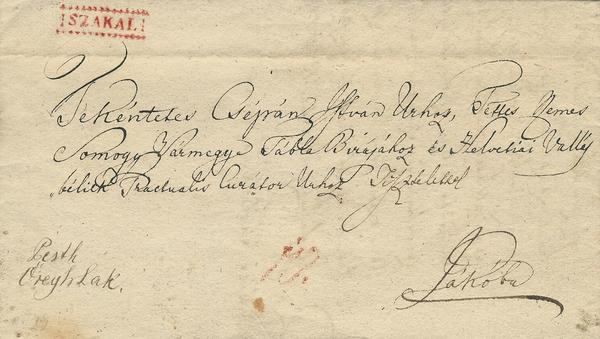 SZAKAL
Tekéntetes Cséprán István Urhoz, Tettes Nemes
Somogy Vármegye Tábla Birájához és Helvetiai Vallás
béliek Tractualis Curátor Urhoz Tisztelettel
Pesth
Öregh Lak.
Jákóba